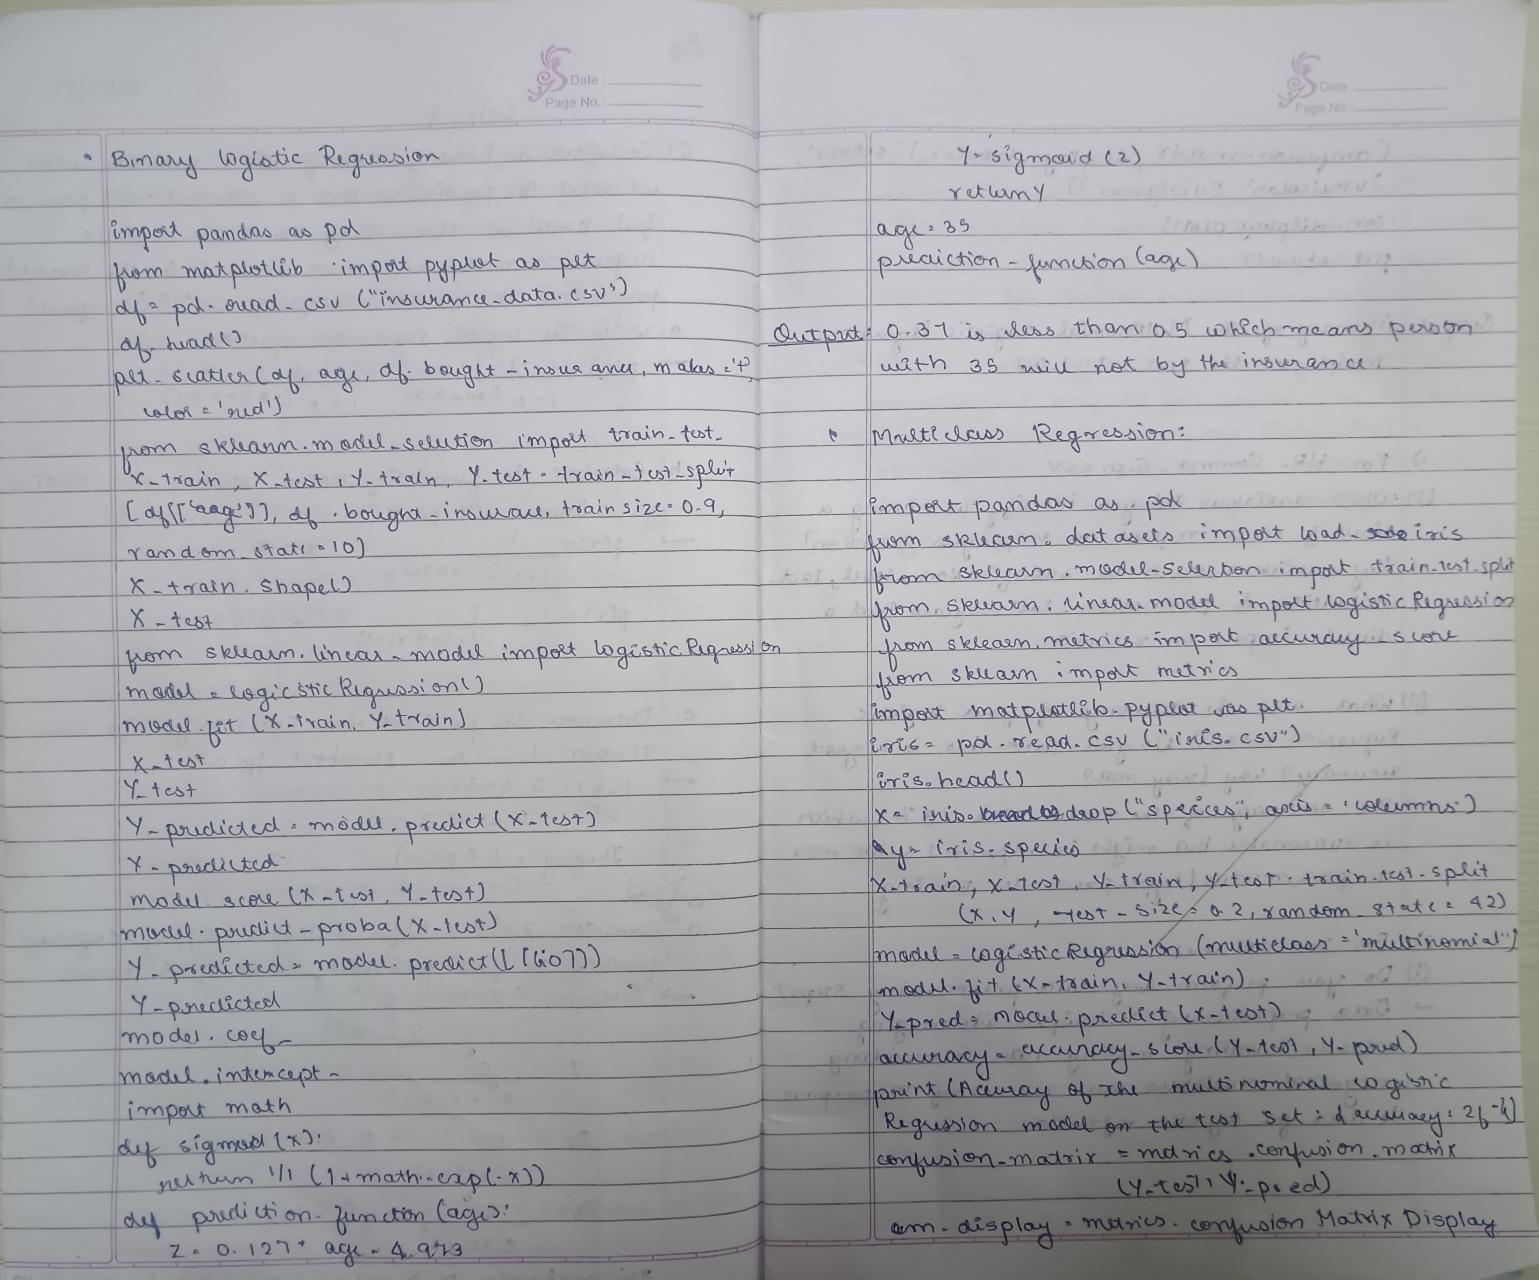 Date :
Page No. :
• Binary logistic Regression
import pandas as pd
from matplotlib import pyplot as plt
df = pd. read_csv ("insurance_data.csv")
df.head()
plt. scatter (df, age, df. bought - insurance, makes = '+'
color = 'red')
from sklearn.model_selection import train_test_
X_train, X_test, Y_train, Y_test = train_test_split
[df[['aage']], df . bought_insurace, train size = 0.9,
random_state = 10]
X_train. shape()
X_test
from sklearn. linear_model import logisticRegression
model = logicsticRegression()
model.fit (X_train, Y_train)
X_test
Y_test
Y_predicted = model. predict (X_test)
Y_predicted
model score (X_test, Y_test)
model. predict_proba(X_test)
Y_predicted = model. predict([[60]])
Y_predicted
model. coef_
model. intercept_
import math
def sigmoid (x):
return 1/1 (1+math.exp(-x))
def prediction_function (age):
Z = 0.127 * age - 4.973
Date
Page No. :
Y = sigmoid (z)
return Y
age = 35
prediction - function (age)
Output: 0.37 is less than 0.5 which means person
with 35 will not by the insurance.
• Multiclass Regression:
import pandas as pd
from sklearn. datasets import load_ iris
from sklearn. model_selection import train_test_split
from sklearn. linear_model import logistic Regression
from sklearn. metrics import accuracy score
from sklearn import metrics
import matplotlib. pyplot as plt.
iris = pd. read. csv ("iris. csv")
iris.head()
X = iris. drop ("species", axis = 'columns')
y = iris. species
X_train, X_test, Y_train, Y_test = train_test_split
(X, Y, test_size = 0.2, random_state = 42)
model = logistic Regression (multiclass = 'multinomial')
model. fit (X_train, Y_train)
Y_pred = model. predict (X_test)
accuracy = accuracy_score (Y_test, Y_pred)
print (Accuray of the multinominal logistic
Regression model on the test set : {accuracy: 2f
confusion_matrix = metrics . confusion_matrix
(Y_test, Y_pred)
cm_display = metrics. confusion Matrix Display